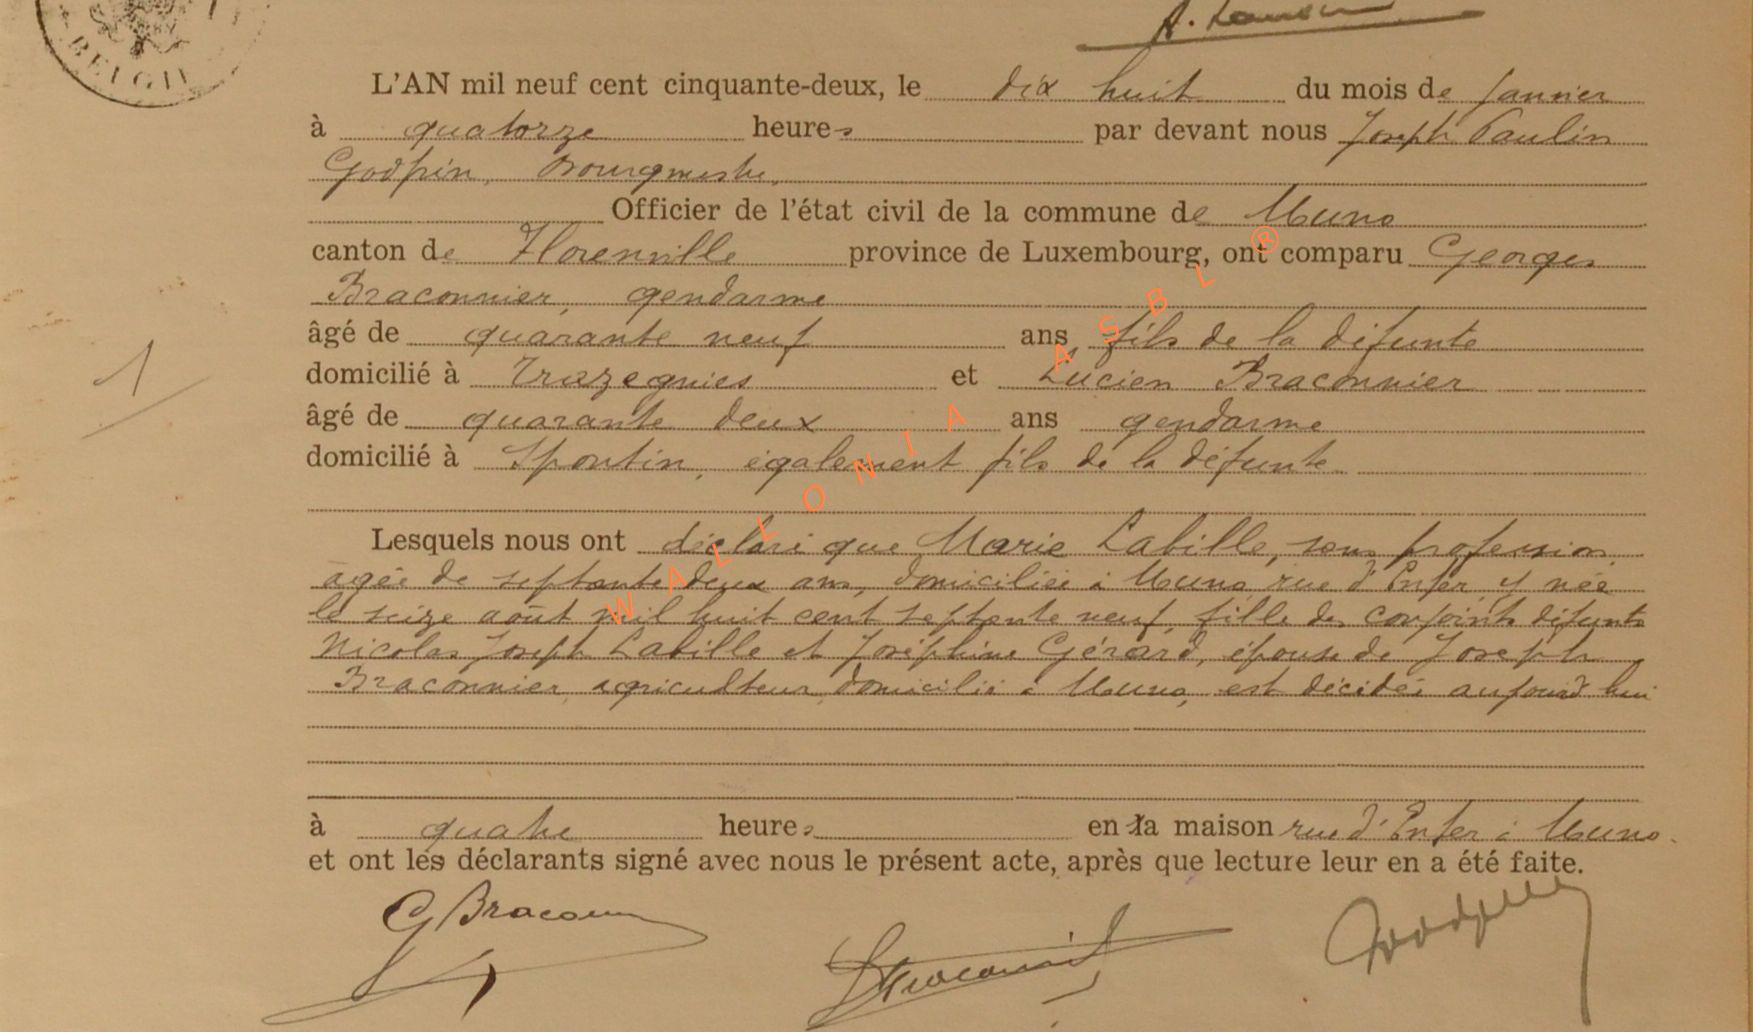 BELGI
L'AN mil neuf cent cinquante-deux, le dix huit du mois de Janvier
à quatorze heures par devant nous Joseph Paulin
Godfrin, Bourgmestre,
Officier de l'état civil de la commune de Muno
canton de Florenville province de Luxembourg, ont comparu Georges
Braconnier, gendarme
âgé de quarante neuf ans, fils de la défunte
domicilié à Trazegnies et Lucien Braconnier
âgé de quarante deux ans gendarme
domicilié à Spontin, également fils de la défunte
Lesquels nous ont déclaré que Marie Labille, sans profession
agée de septante deux ans, domiciliée à Muno rue d'Enfer, y née
le seize août mil huit cent septante neuf, fille des conjoints défunts
Nicolas Joseph Labille et Joséphine Gérard, épouse de Joseph
Braconnier, agriculteur, domicilié à Muno, est décédée aujourd'hui
à quatre heures en la maison rue d'Enfer à Muno.
et ont les déclarants signé avec nous le présent acte, après que lecture leur en a été faite.
1
G Braconn
WALLONIA ASBL ®